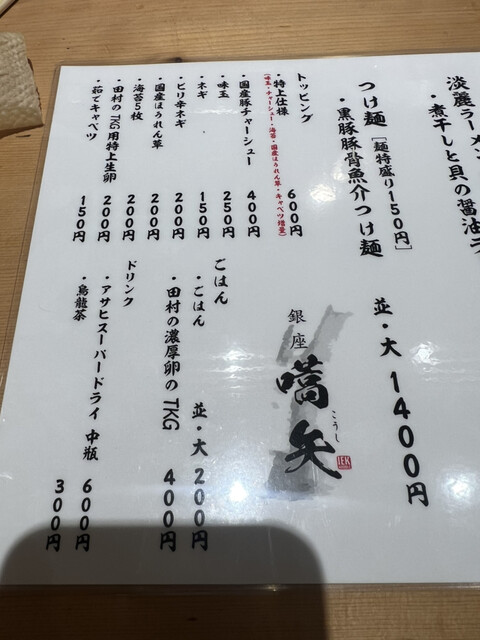 淡麗ラーメン
・煮干しと貝の醤油ラ
つけ麺 [麺特盛り150円]
・黒豚豚骨魚介つけ麺
並・大 1400円
トッピング
・特上仕様 600円
(味玉・チャーシュー・海苔・国産ほうれん草・キャベツ増量)
・国産豚チャーシュー 400円
・味玉 250円
・ネギ 150円
・ピリ辛ネギ 200円
・国産ほうれん草 200円
・海苔5枚 200円
・田村の TKG用特上生卵 200円
・茹でキャベツ 150円
銀座
嚆矢
こうし
IEK
ごはん
・ごはん 並・大 200円
・田村の濃厚卵のTKG 400円
ドリンク
・アサヒスーパードライ 中瓶 600円
・烏龍茶 300円